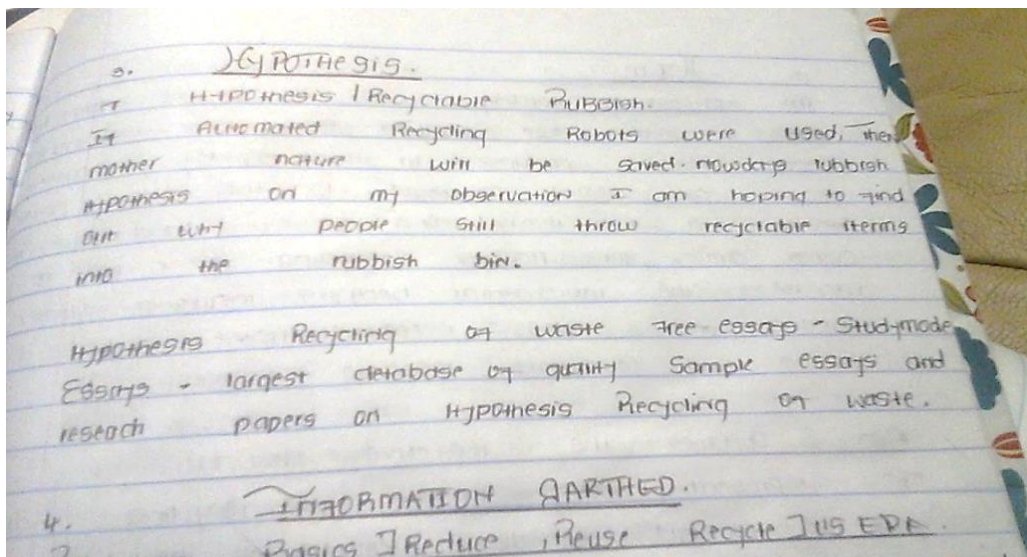 3. HYPOTHESIS.
I HYPOTHESIS | Recyclable RUBBISH.
If Automated Recycling Robots were used, then
mother nature will be saved. nowdays rubbish
Hypothesis on my observation I am hoping to find
out why people still throw recyclable iterms
into the rubbish bin.
Hypothesis Recycling of waste Free essays - Studymode
Essays - largest database of quality Sample essays and
reseach papers on Hypothesis Recycling of waste.
4. INFORMATION GARTHED.
Basics | Reduce, Reuse Recycle | US EPA.